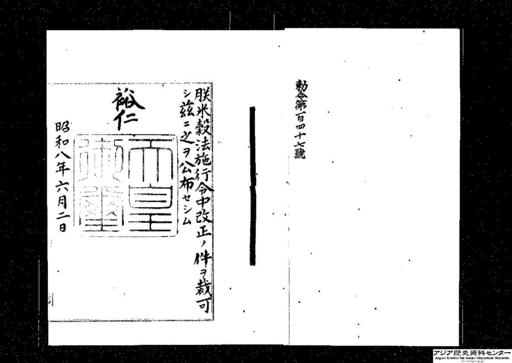 朕米穀法施行令中改正ノ件ヲ裁可
シ茲ニ之ヲ公布セシム
裕仁
天皇御璽
昭和八年六月二日
勅令第百四十七號
アジア歴史資料センター
Japan Center for Asian Historical Records